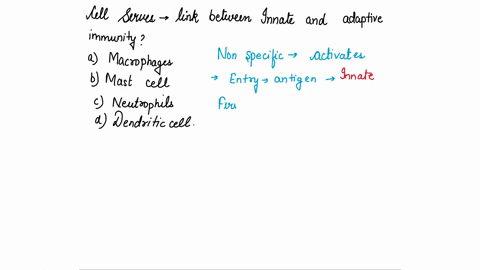 Cell Serves → link between Innate and adaptive
immunity?
a) Macrophages
b) Mast cell
c) Neutrophils
d) Dendritic cell.
Non specific → activates
→ Entry → antigen → Innate
Firs